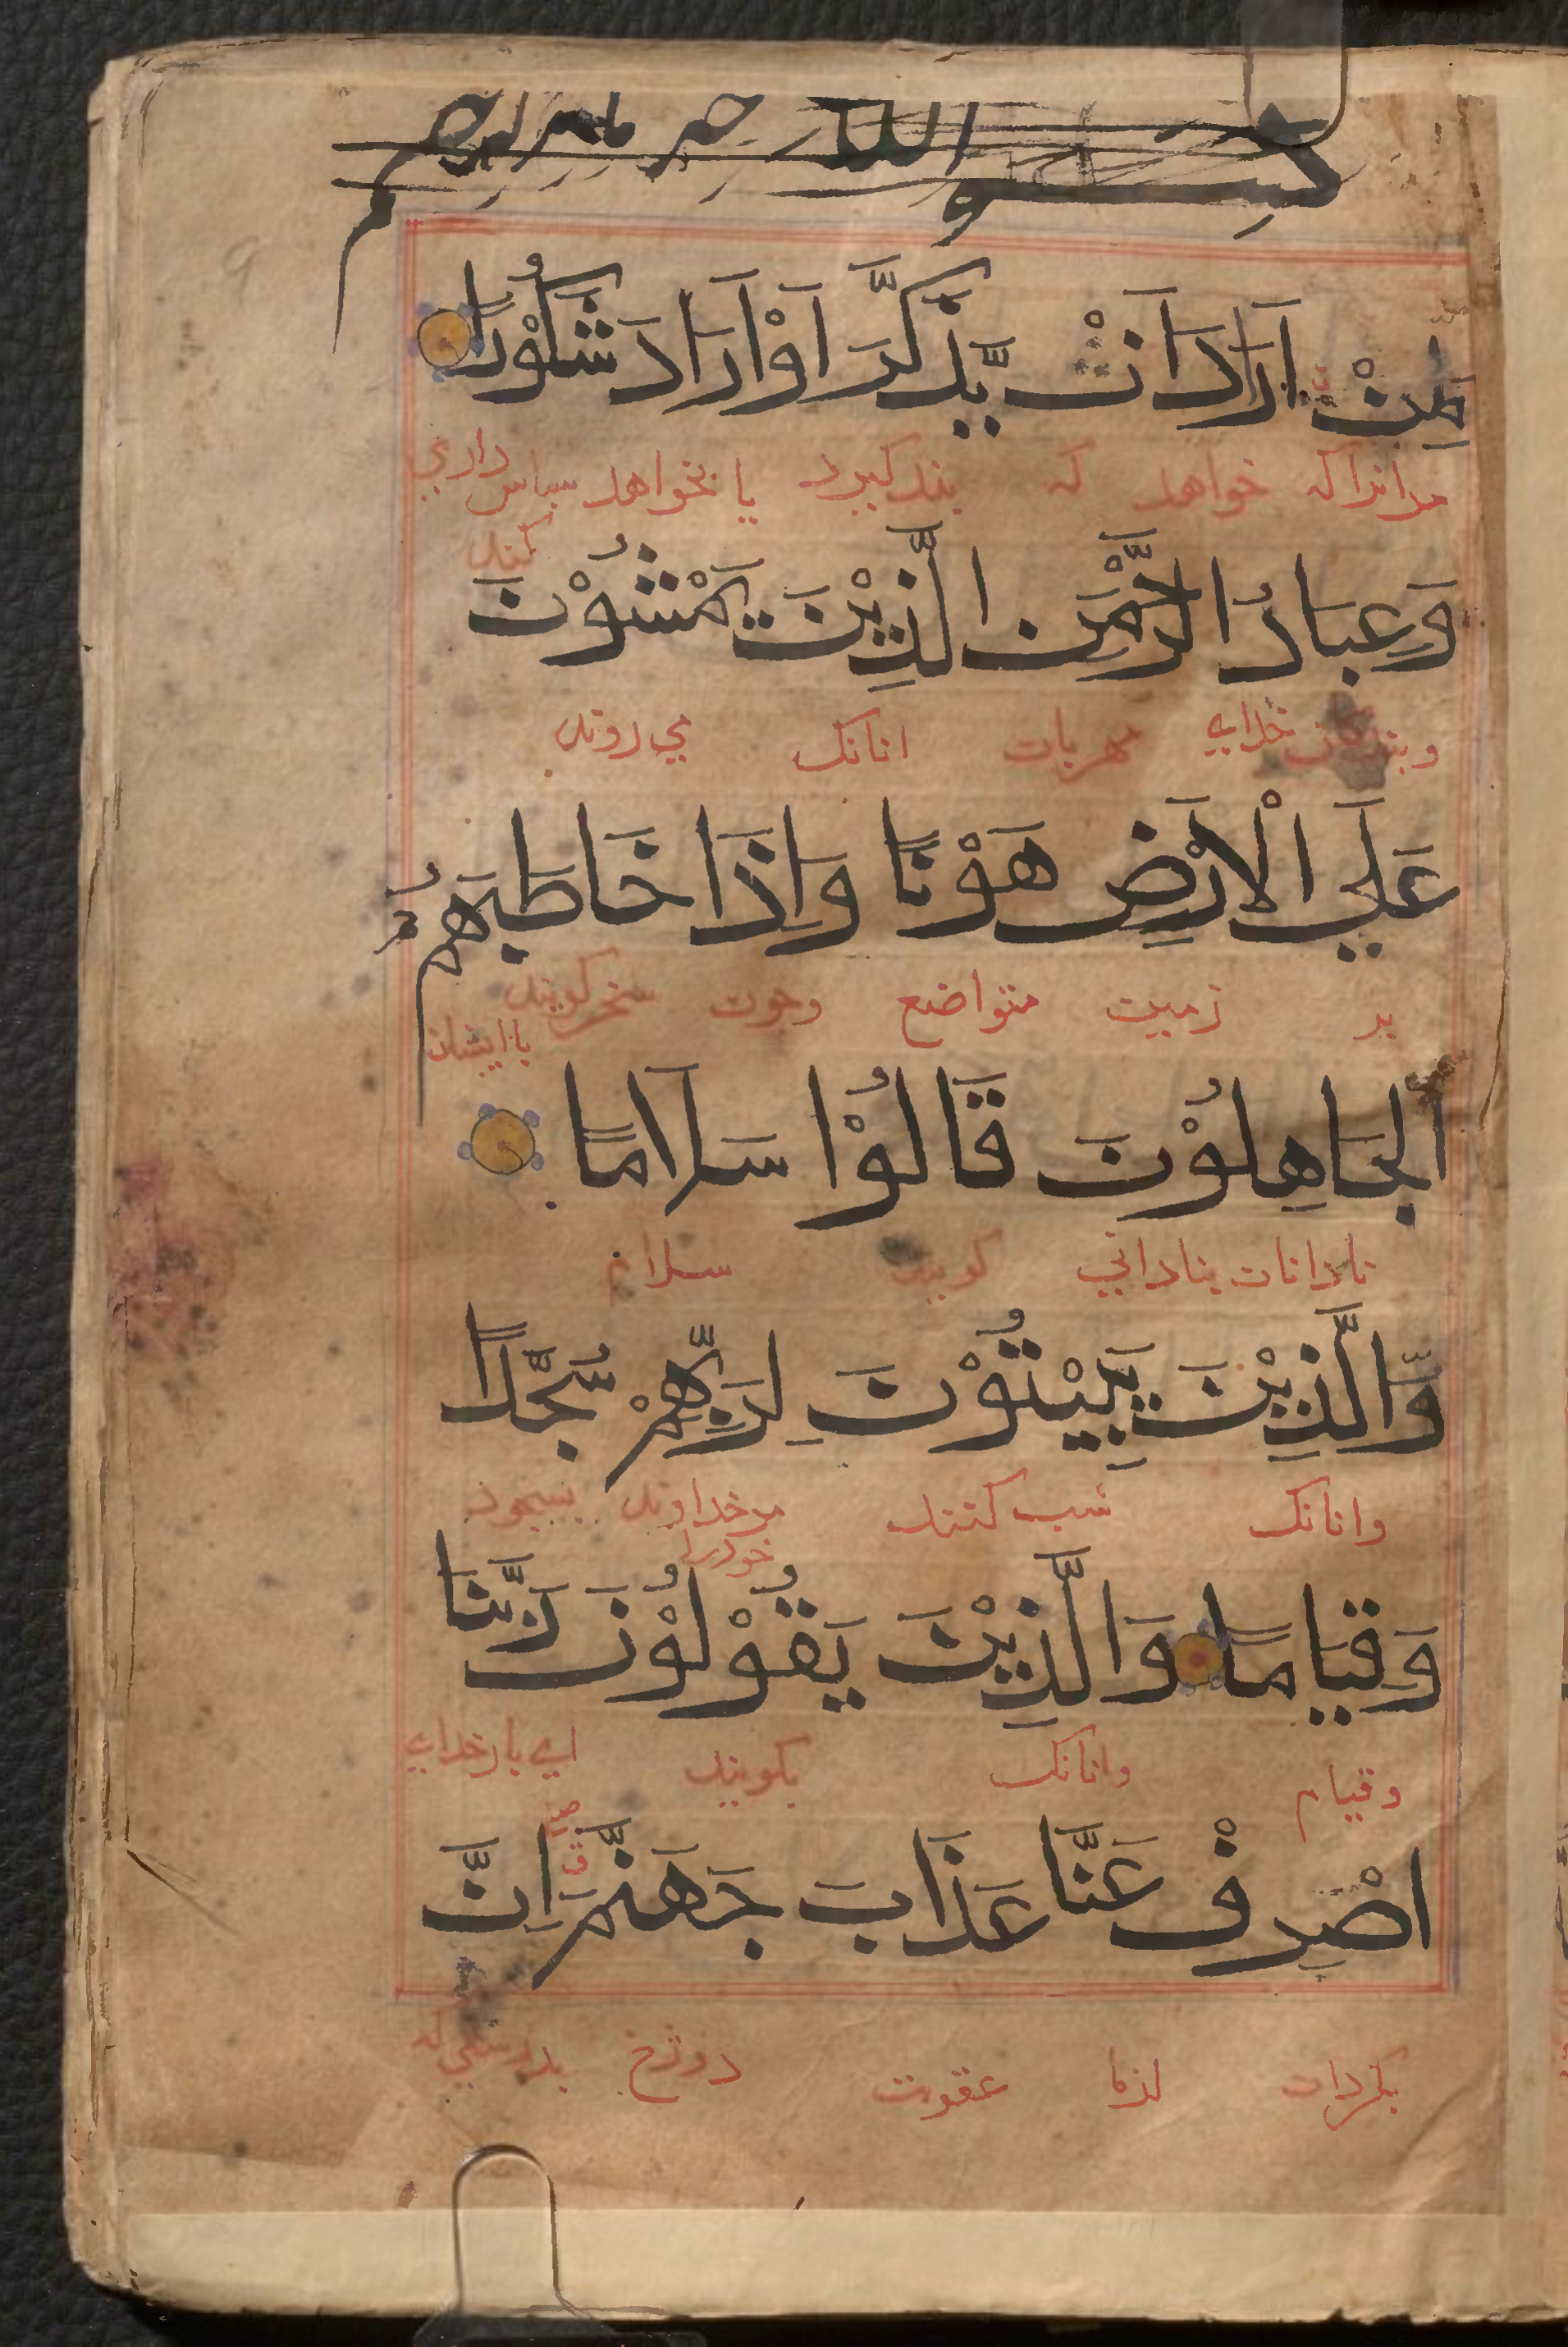 بسم الله خير الرحيم
لِّمَنْ اَرَادَ اَنْ يَّذَّكَّرَ اَوْ اَرَادَ شُكُوْرًا
مرانراکه خواهد که پند گیرد یا بخواهد سپاس داري
کند
وَعِبَادُ الرَّحْمٰنِ الَّذِيْنَ يَمْشُوْنَ
وبندگان خدای مهربان انانک می روند
عَلَي الْاَرْضِ هَوْنًا وَاِذَا خَاطَبَهُمُ
بر زمین متواضع وچون سخن گویند
باایشان
الْجَاهِلُوْنَ قَالُوْا سَلَامًا
نادانان بنادانی گویند سلام
وَّالَّذِيْنَ يَبِيْتُوْنَ لِرَبِّهِمْ سُجَّدًا
وانانک شب کنند مرخداوند بسجود
خودرا
وَقِيَامًا وَالَّذِيْنَ يَقُوْلُوْنَ رَبَّنَا
وقیام وانانک بگویند ای بارخدای
اصْرِفْ عَنَّا عَذَابَ جَهَنَّمَ اِنَّ
بگردان ازما عقوبت دوزخ بدرستی که